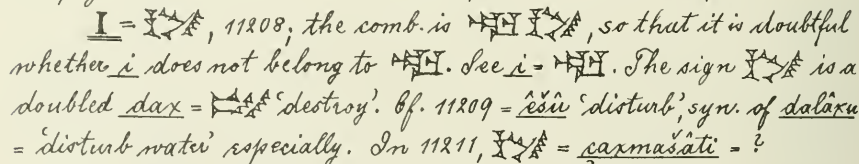 I = , 11208; the comb. is , so that it is doubtful
whether i does not belong to . See i = . The sign is a
doubled dax = 'destroy'. Cf. 11209 = êšû 'disturb', syn. of dalâxu
= 'disturb water' especially. In 11211, = caxmašâti = ?